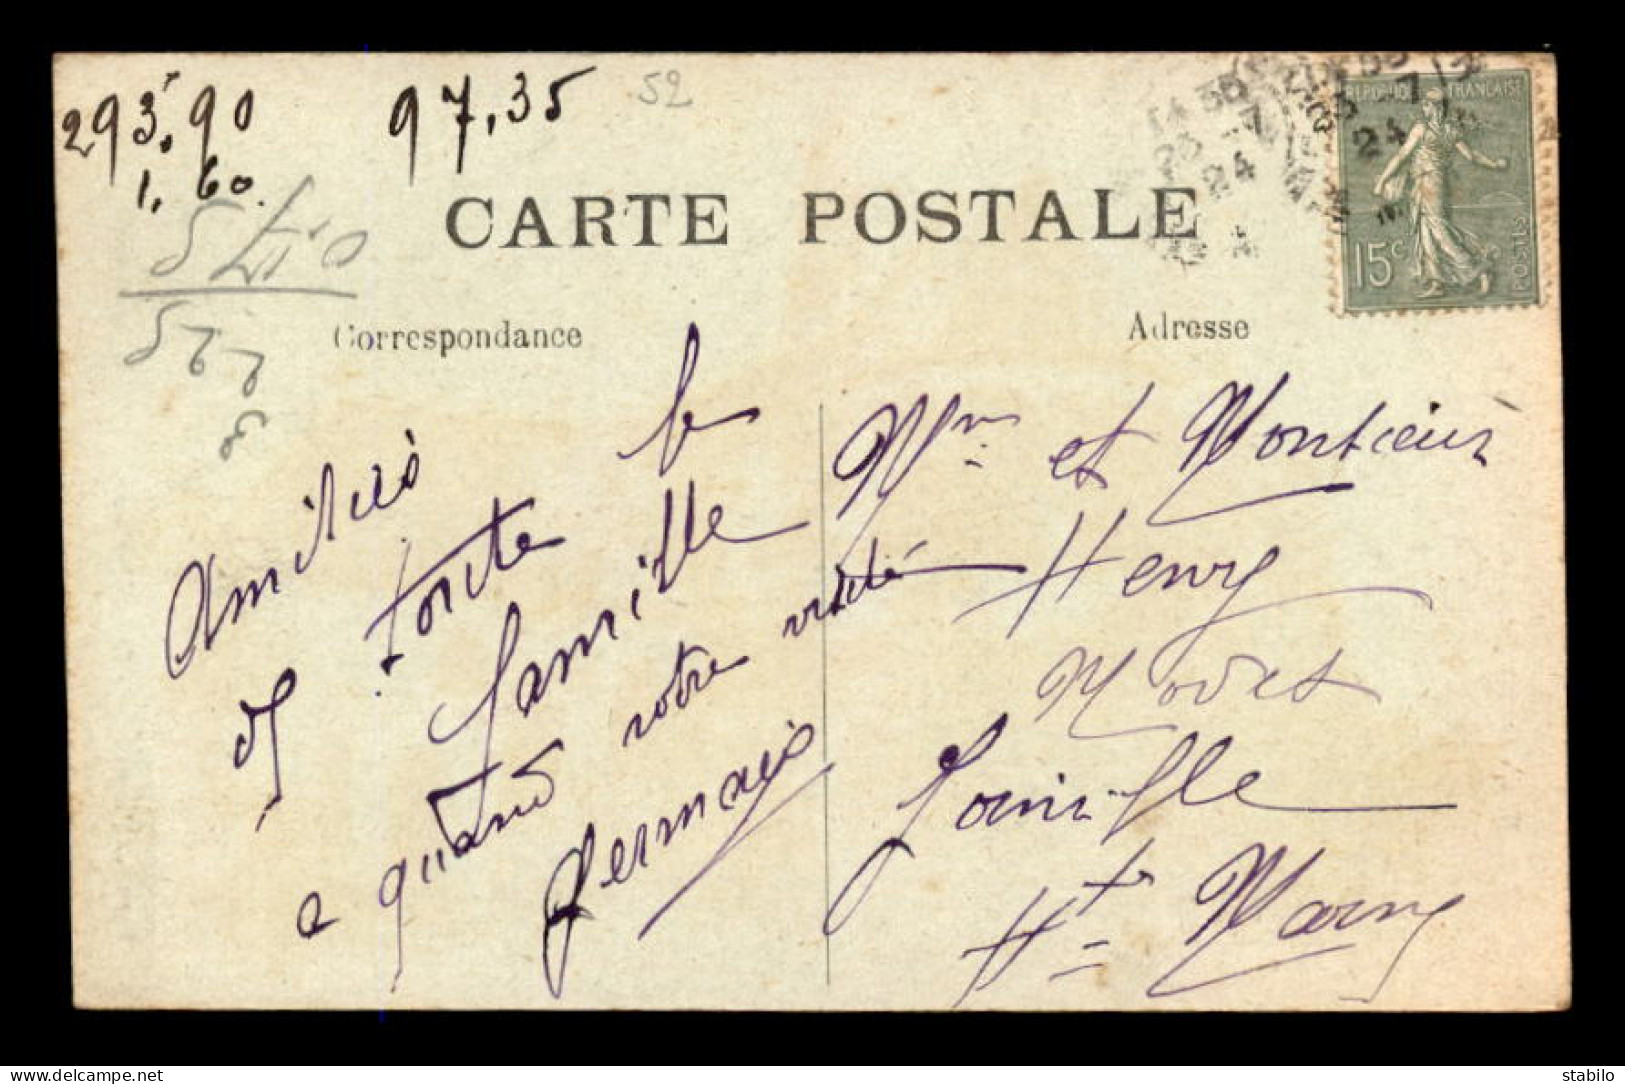 293,90
1,60
97,35
52
CARTE POSTALE
Correspondance
Adresse
REPUBLIQUE FRANÇAISE
15c
POSTES
24
24
Amitiés
de toute la
famille
a quand votre visite
Germaine
Mr et
Henry
Modes
Joinville
Hte Marne
www.delcampe.net
stabilo